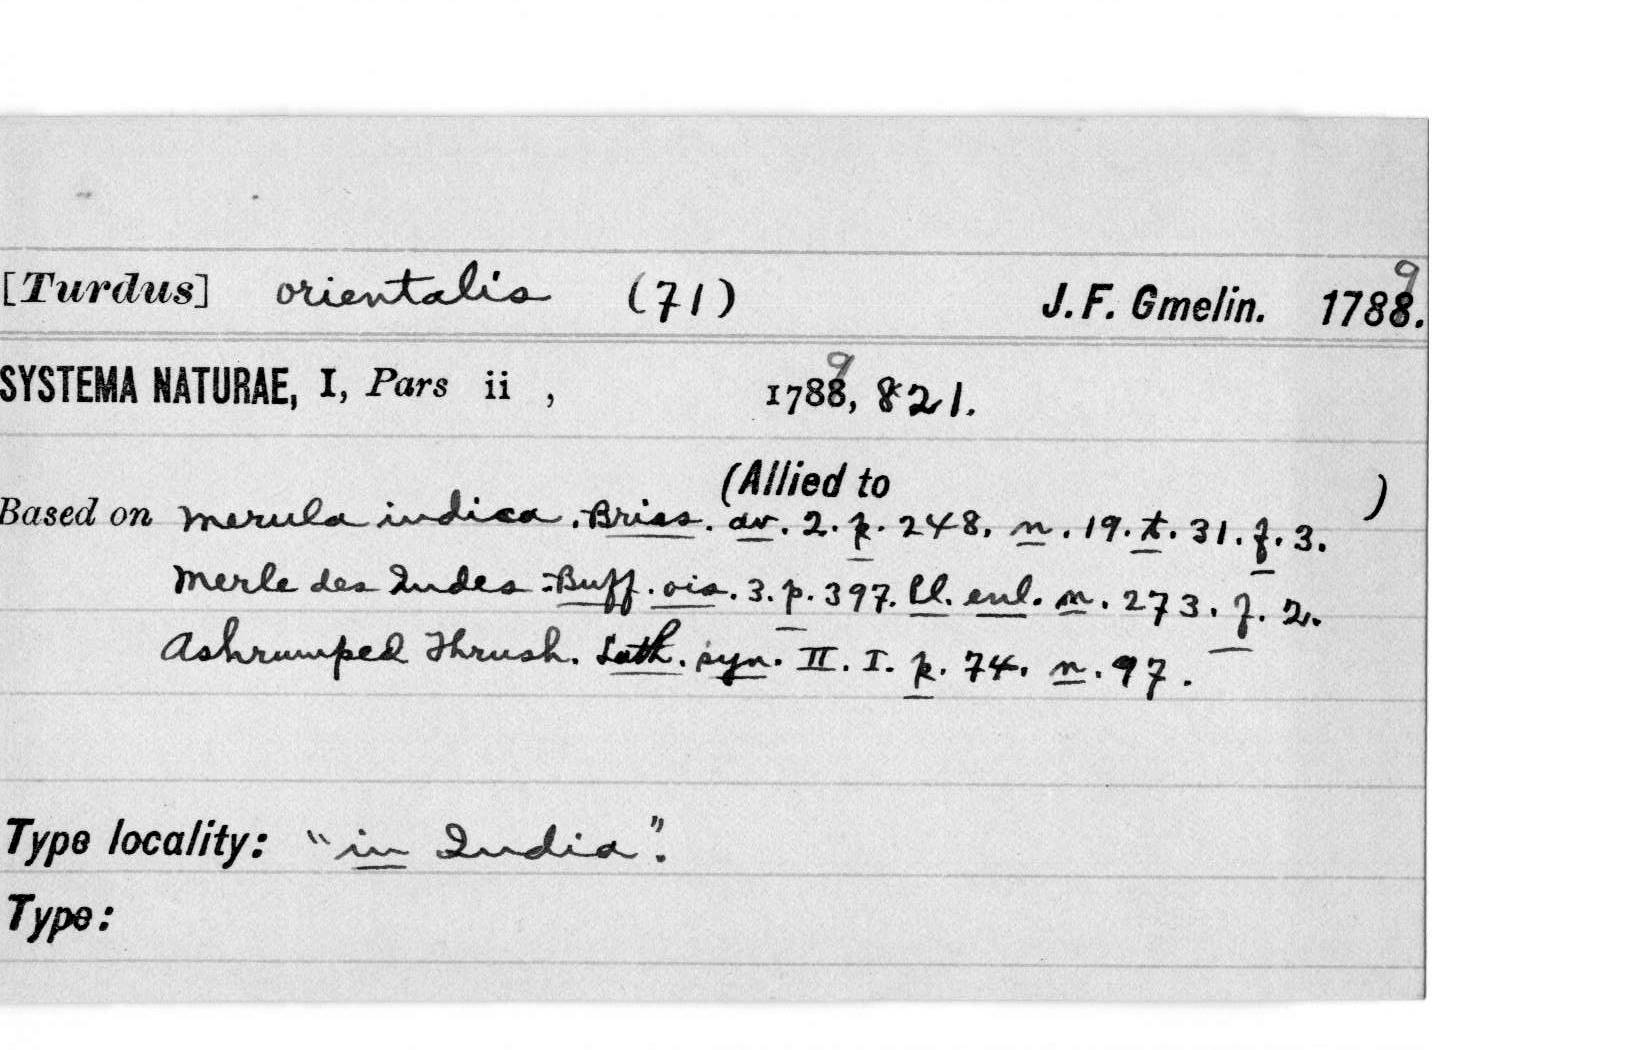 [Turdus] orientalis (71) J. F. Gmelin. 1788.9
SYSTEMA NATURAE, I, Pars ii , 1788,9 821.
(Allied to )
Based on Merula indica. Briss. av. 2. p. 248. n. 19. t. 31. f. 3.
Merle des Indes. Buff. ois. 3. p. 397. Pl. enl. n. 273. f. 2.
Ashrumped Thrush. Lath. syn. II. I. p. 74. n. 97.
Type locality: "in India".
Type: